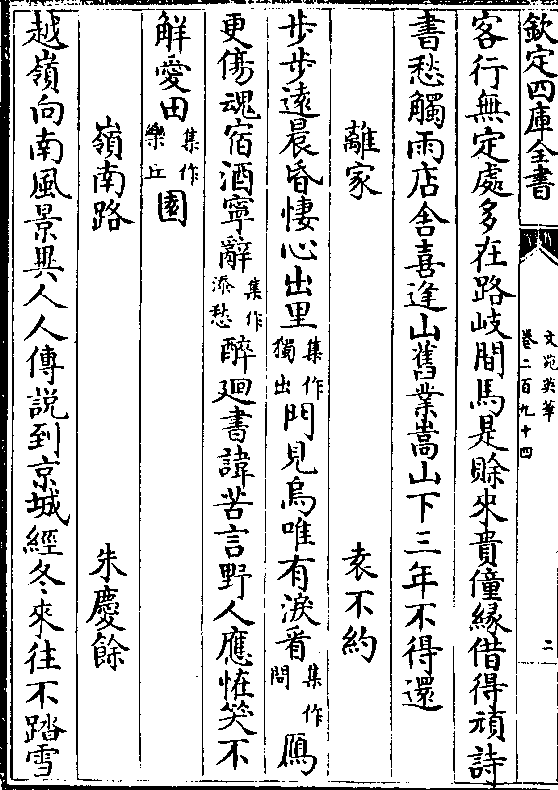 欽定四庫全書
文苑英華
卷二百九十四
二
客行無定處多在路岐間馬是賒來貴僮緣借得頑詩
書愁觸雨店舍喜逢山舊業嵩山下三年不得還
離家
袁不約
步步遠晨昏悽心出里集作獨出門見烏唯有淚看集作問鴈
更傷魂宿酒寧辭集作添愁醉廻書諱苦言野人應恠笑不
解愛田集作樂丘園
嶺南路
朱慶餘
越嶺向南風景異人人傳説到京城經冬來往不踏雪